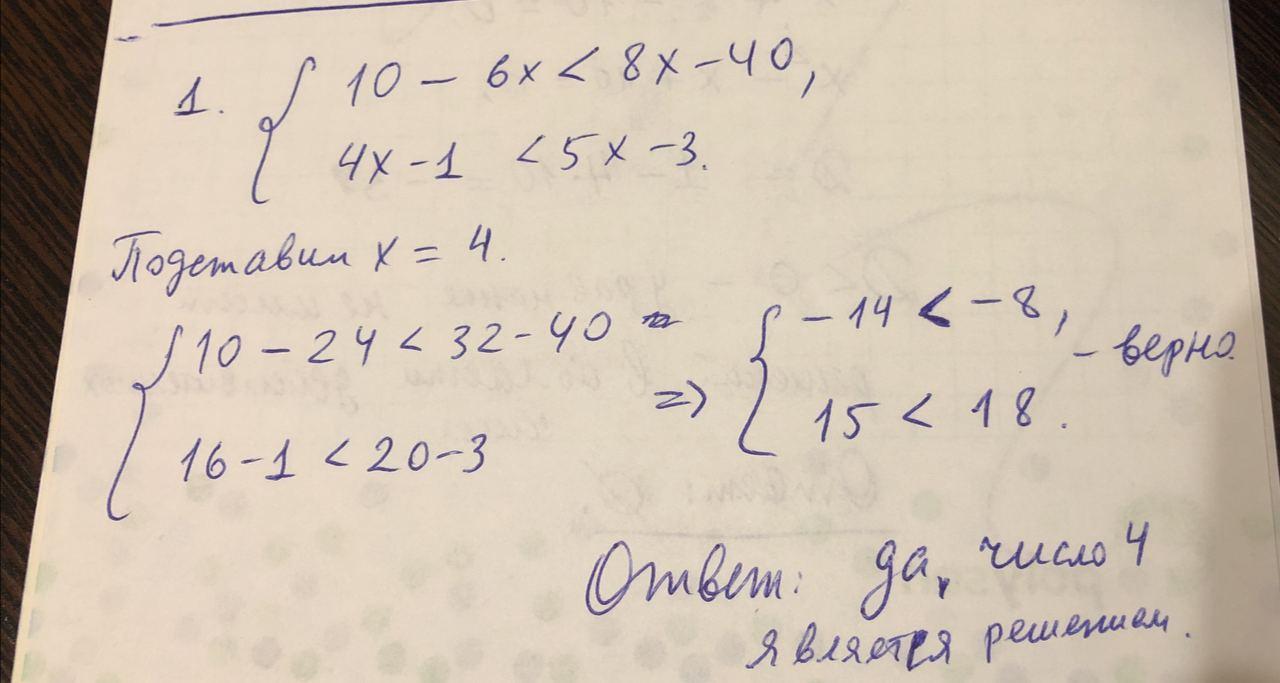 1. { 10 - 6x < 8x - 40,
4x - 1 < 5x - 3.
Подставим x = 4.
{ 10 - 24 < 32 - 40
16 - 1 < 20 - 3
=> { - 14 < - 8,
15 < 18.
- верно.
Ответ: да, число 4
является решением.